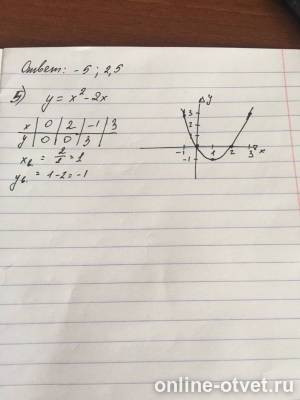 Ответ: -5 ; 2,5
5) y = x² - 2x
x | 0 | 2 | -1 | 3
y | 0 | 0 | 3 |
xв. = 2/2 = 1
yв. = 1-2 = -1
y
3
2
-1 1 2 3 x
-1
online-otvet.ru